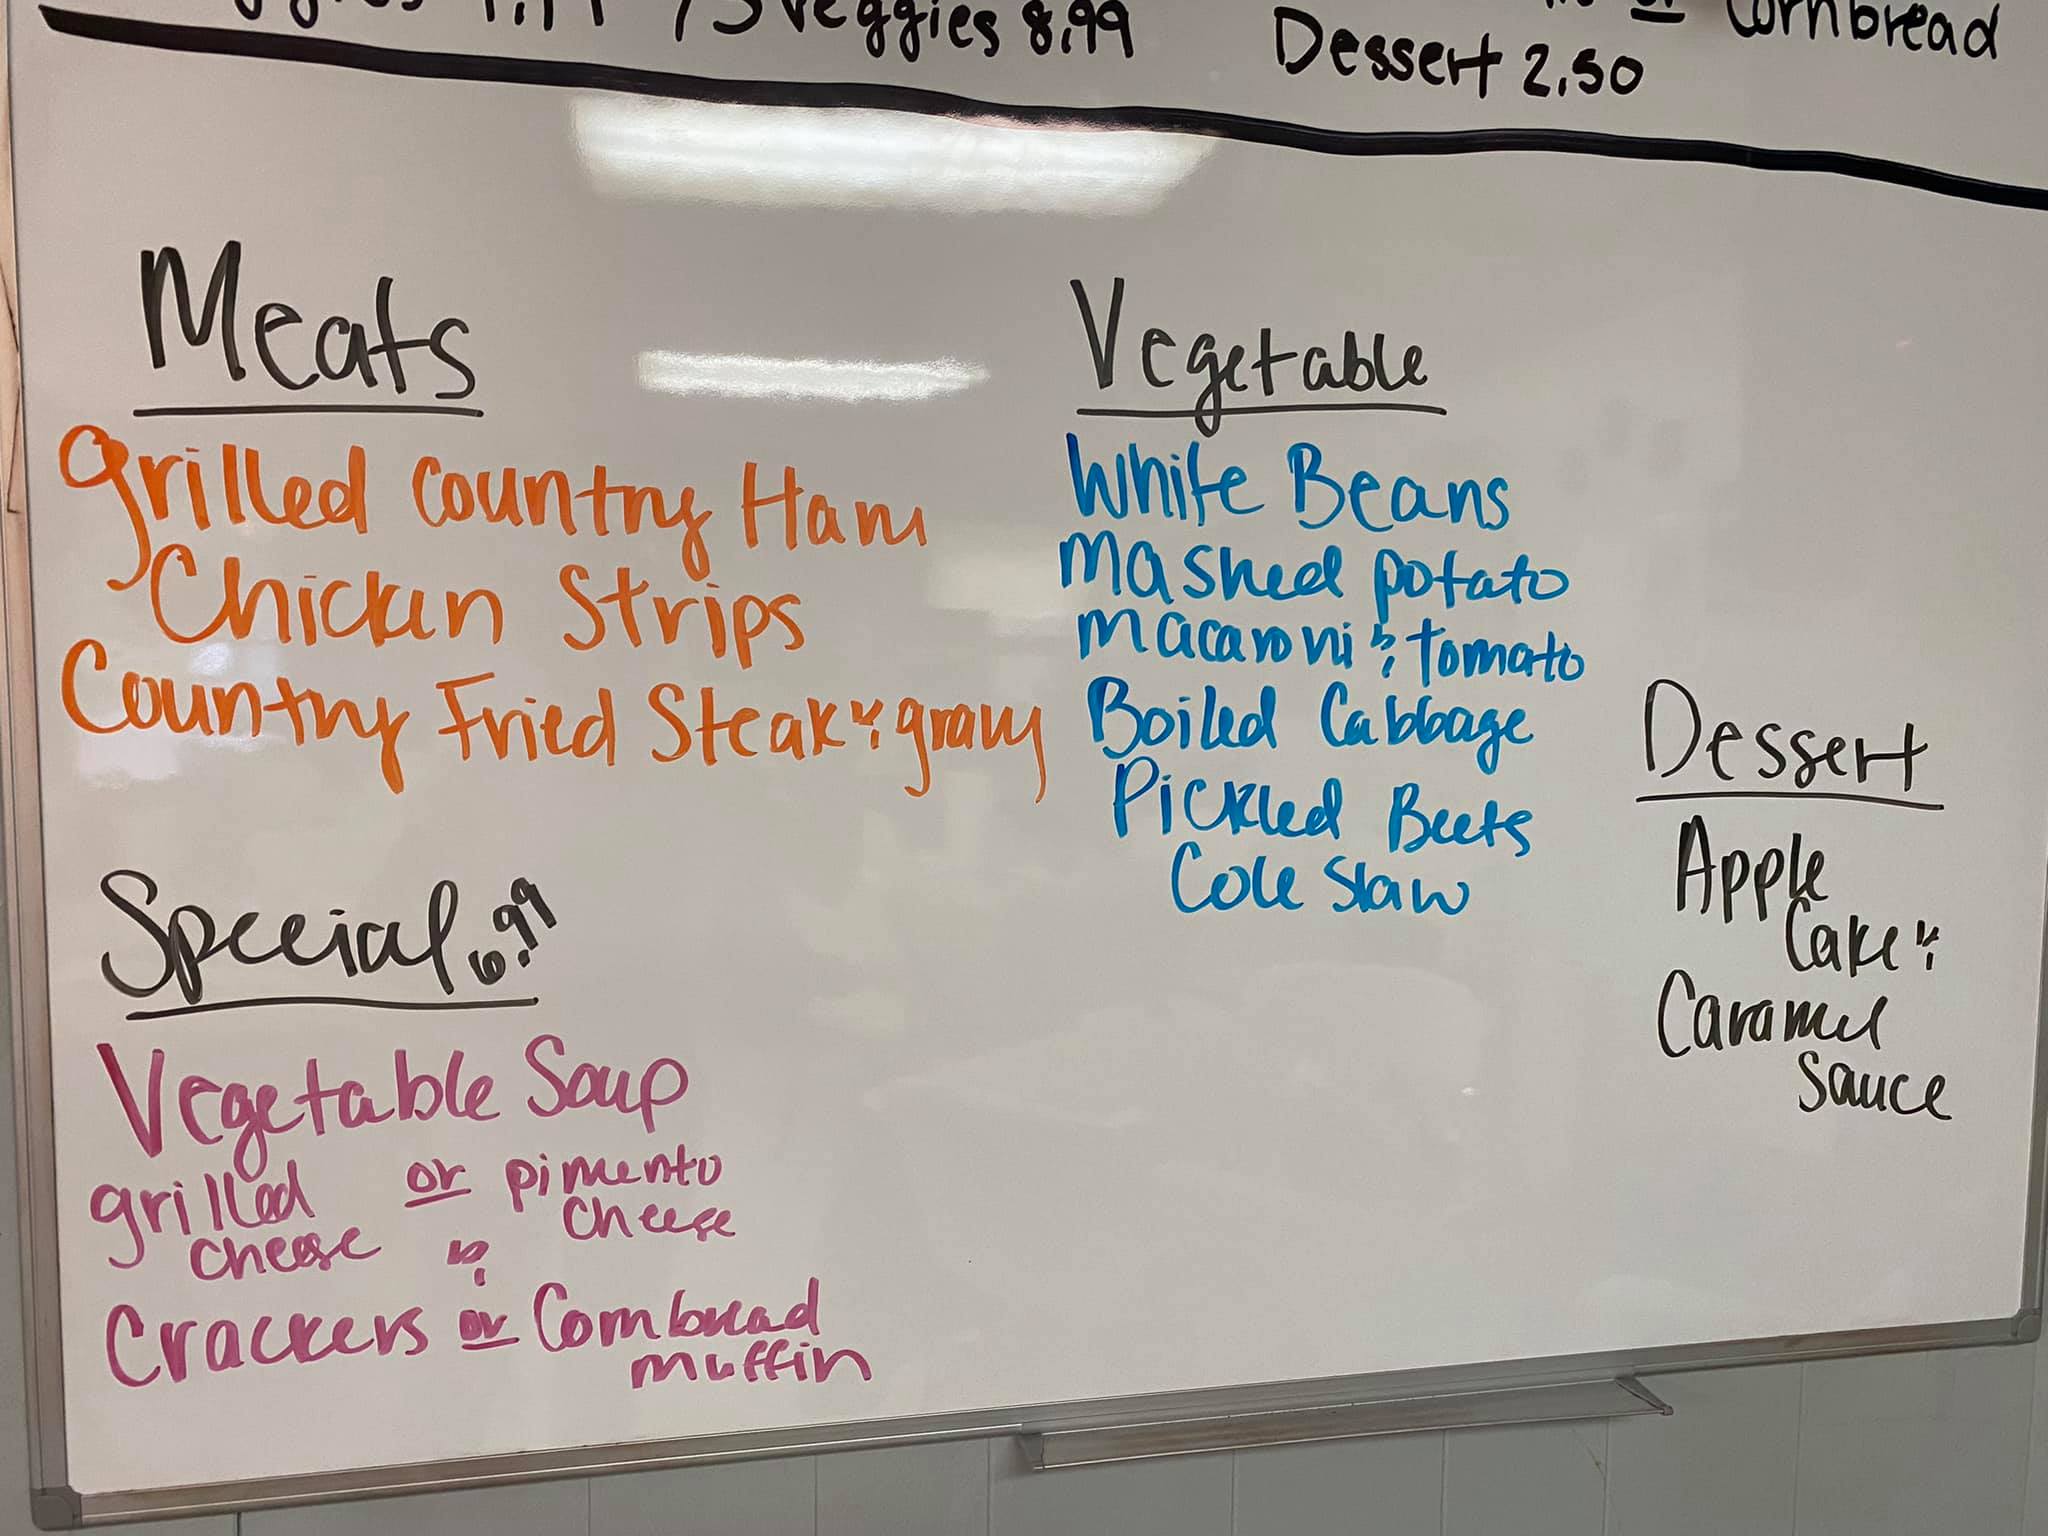 /3 Veggies 8.99
or Cornbread
Dessert 2.50
Meats
Grilled Country Ham
Chicken Strips
Country Fried Steak & gravy
Special 6.99
Vegetable Soup
grilled cheese or pimento cheese
&
Crackers or Cornbread muffin
Vegetable
White Beans
Mashed potato
Macaroni & Tomato
Boiled Cabbage
Pickled Beets
Cole Slaw
Dessert
Apple
Cake &
Caramel
Sauce